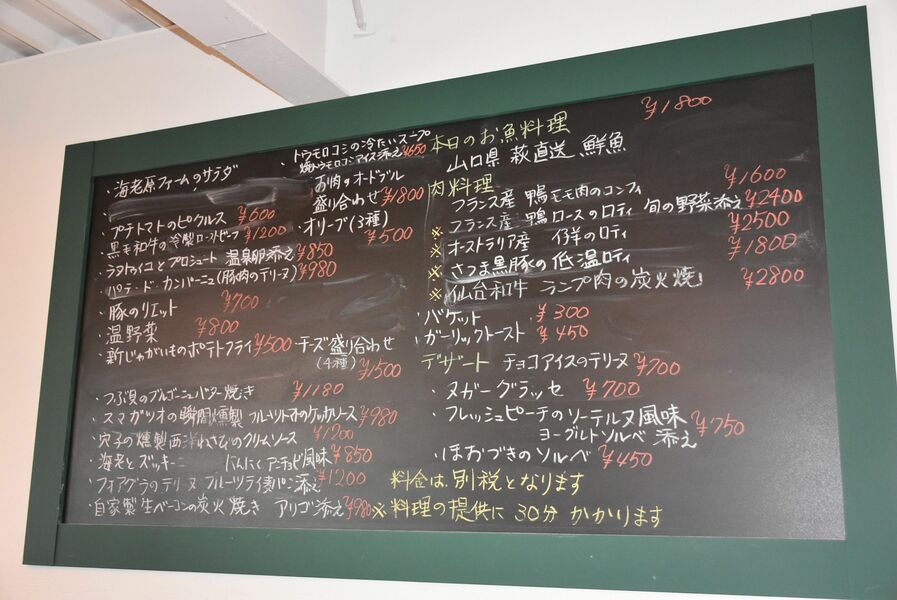 ・海老原ファームのサラダ
・プチトマトのピクルス ¥600
・黒毛和牛の冷製ローストビーフ ¥1200
・ラタトゥイユとプロシュート 温泉卵添え ¥850
・パテ・ド・カンパーニュ(豚肉のテリーヌ) ¥980
・豚のリエット ¥700
・温野菜 ¥800
・新じゃがいものポテトフライ ¥500
・つぶ貝のブルゴーニュバター焼き ¥1180
・スマガツオの瞬間燻製 フルーツトマトのケッカソース ¥980
・穴子の燻製西洋わさびのクリームソース ¥1200
・海老とズッキーニ にんにくアンチョビ風味 ¥850
・フォアグラのテリーヌ フルーツライ麦パン添え ¥1200
・自家製生ベーコンの炭火焼き アリゴ添え ¥980
・トウモロコシの冷たいスープ
焼トウモロコシアイス添え ¥650
・お肉のオードブル
盛り合わせ ¥1800
・オリーブ(3種)
¥500
チーズ盛り合わせ
(4種) ¥1500
本日のお魚料理 ¥1800
山口県 萩直送 鮮魚
肉料理
フランス産 鴨モモ肉のコンフィ ¥1600
※フランス産 鴨ロースのロティ 旬の野菜添え ¥2400
※オーストラリア産 仔羊のロティ ¥2500
※さつま黒豚の低温ロティ ¥1800
※仙台和牛 ランプ肉の炭火焼 ¥2800
・バケット ¥300
・ガーリックトースト ¥450
デザート チョコアイスのテリーヌ ¥700
・ヌガーグラッセ ¥700
・フレッシュピーチのソーテルヌ風味
ヨーグルトソルベ 添え ¥750
・ほおづきのソルベ ¥450
料金は別税となります
※料理の提供に30分かかります